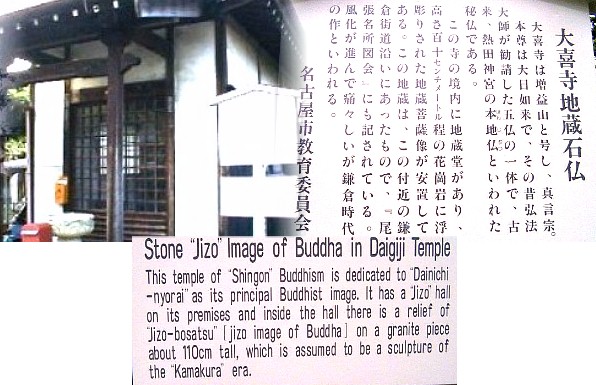 大喜寺地蔵石仏
大喜寺は増益山と号し、真言宗。
本尊は大日如来で、その昔弘法
大師が勧請した五仏の一体で、古
来、熱田神宮の本地仏といわれた
秘仏である。
この寺の境内に地蔵堂があり、
高さ百十センチメートル程の花崗岩に浮
彫りされた地蔵菩薩像が安置して
ある。この地蔵は、この付近の鎌
倉街道沿いにあったもので、『尾
張名所図会』にも記されている。
風化が進んで痛々しいが鎌倉時代
の作といわれる。
名古屋市教育委員会
Stone "Jizo" Image of Buddha in Daigiji Temple
This temple of "Shingon" Buddhism is dedicated to "Dainichi
-nyorai" as its principal Buddhist image. It has a "Jizo" hall
on its premises and inside the hall there is a relief of
"Jizo-bosatsu" [jizo image of Buddha] on a granite piece
about 110cm tall, which is assumed to be a sculpture of
the "Kamakura" era.